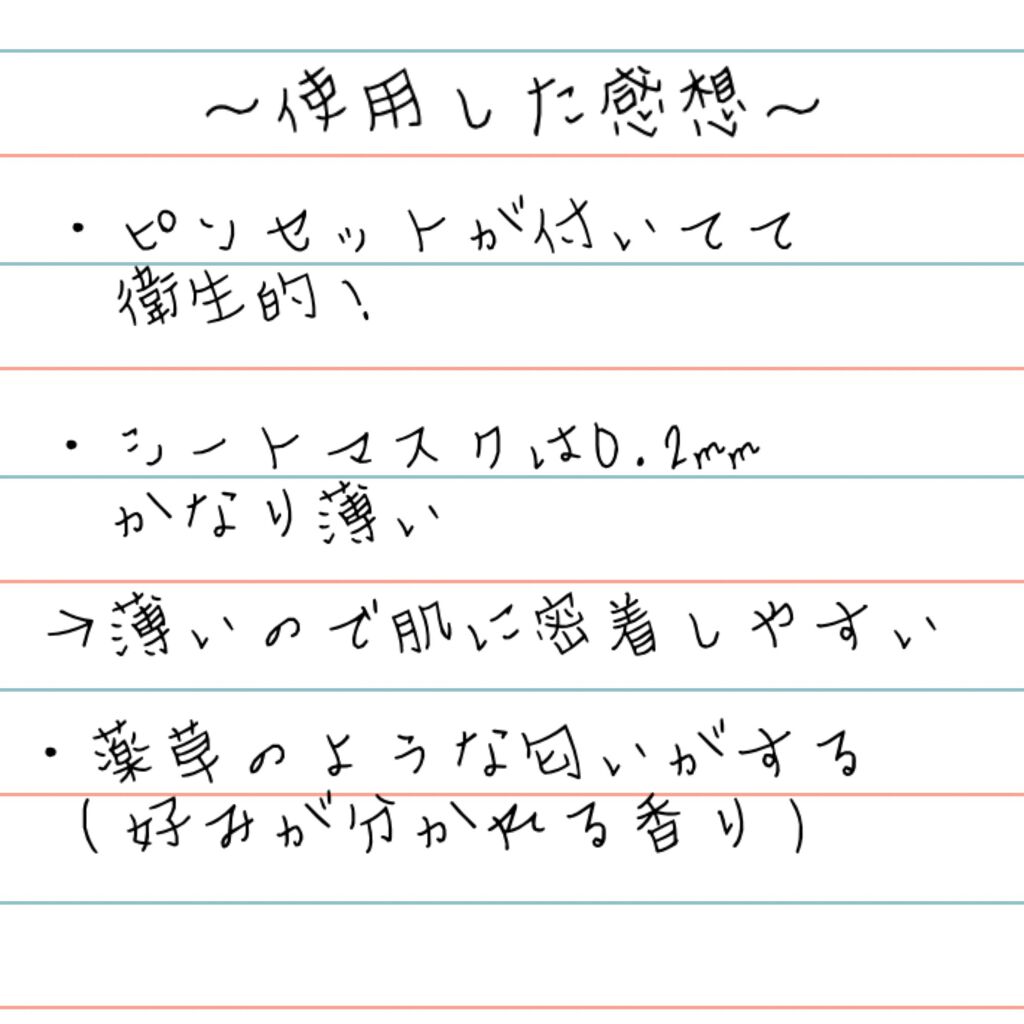 〜使用した感想〜
・ピンセットが付いてて
衛生的！
・シートマスクは0.2mm
かなり薄い
→薄いので肌に密着しやすい
・薬草のような匂いがする
(好みが分かれる香り)